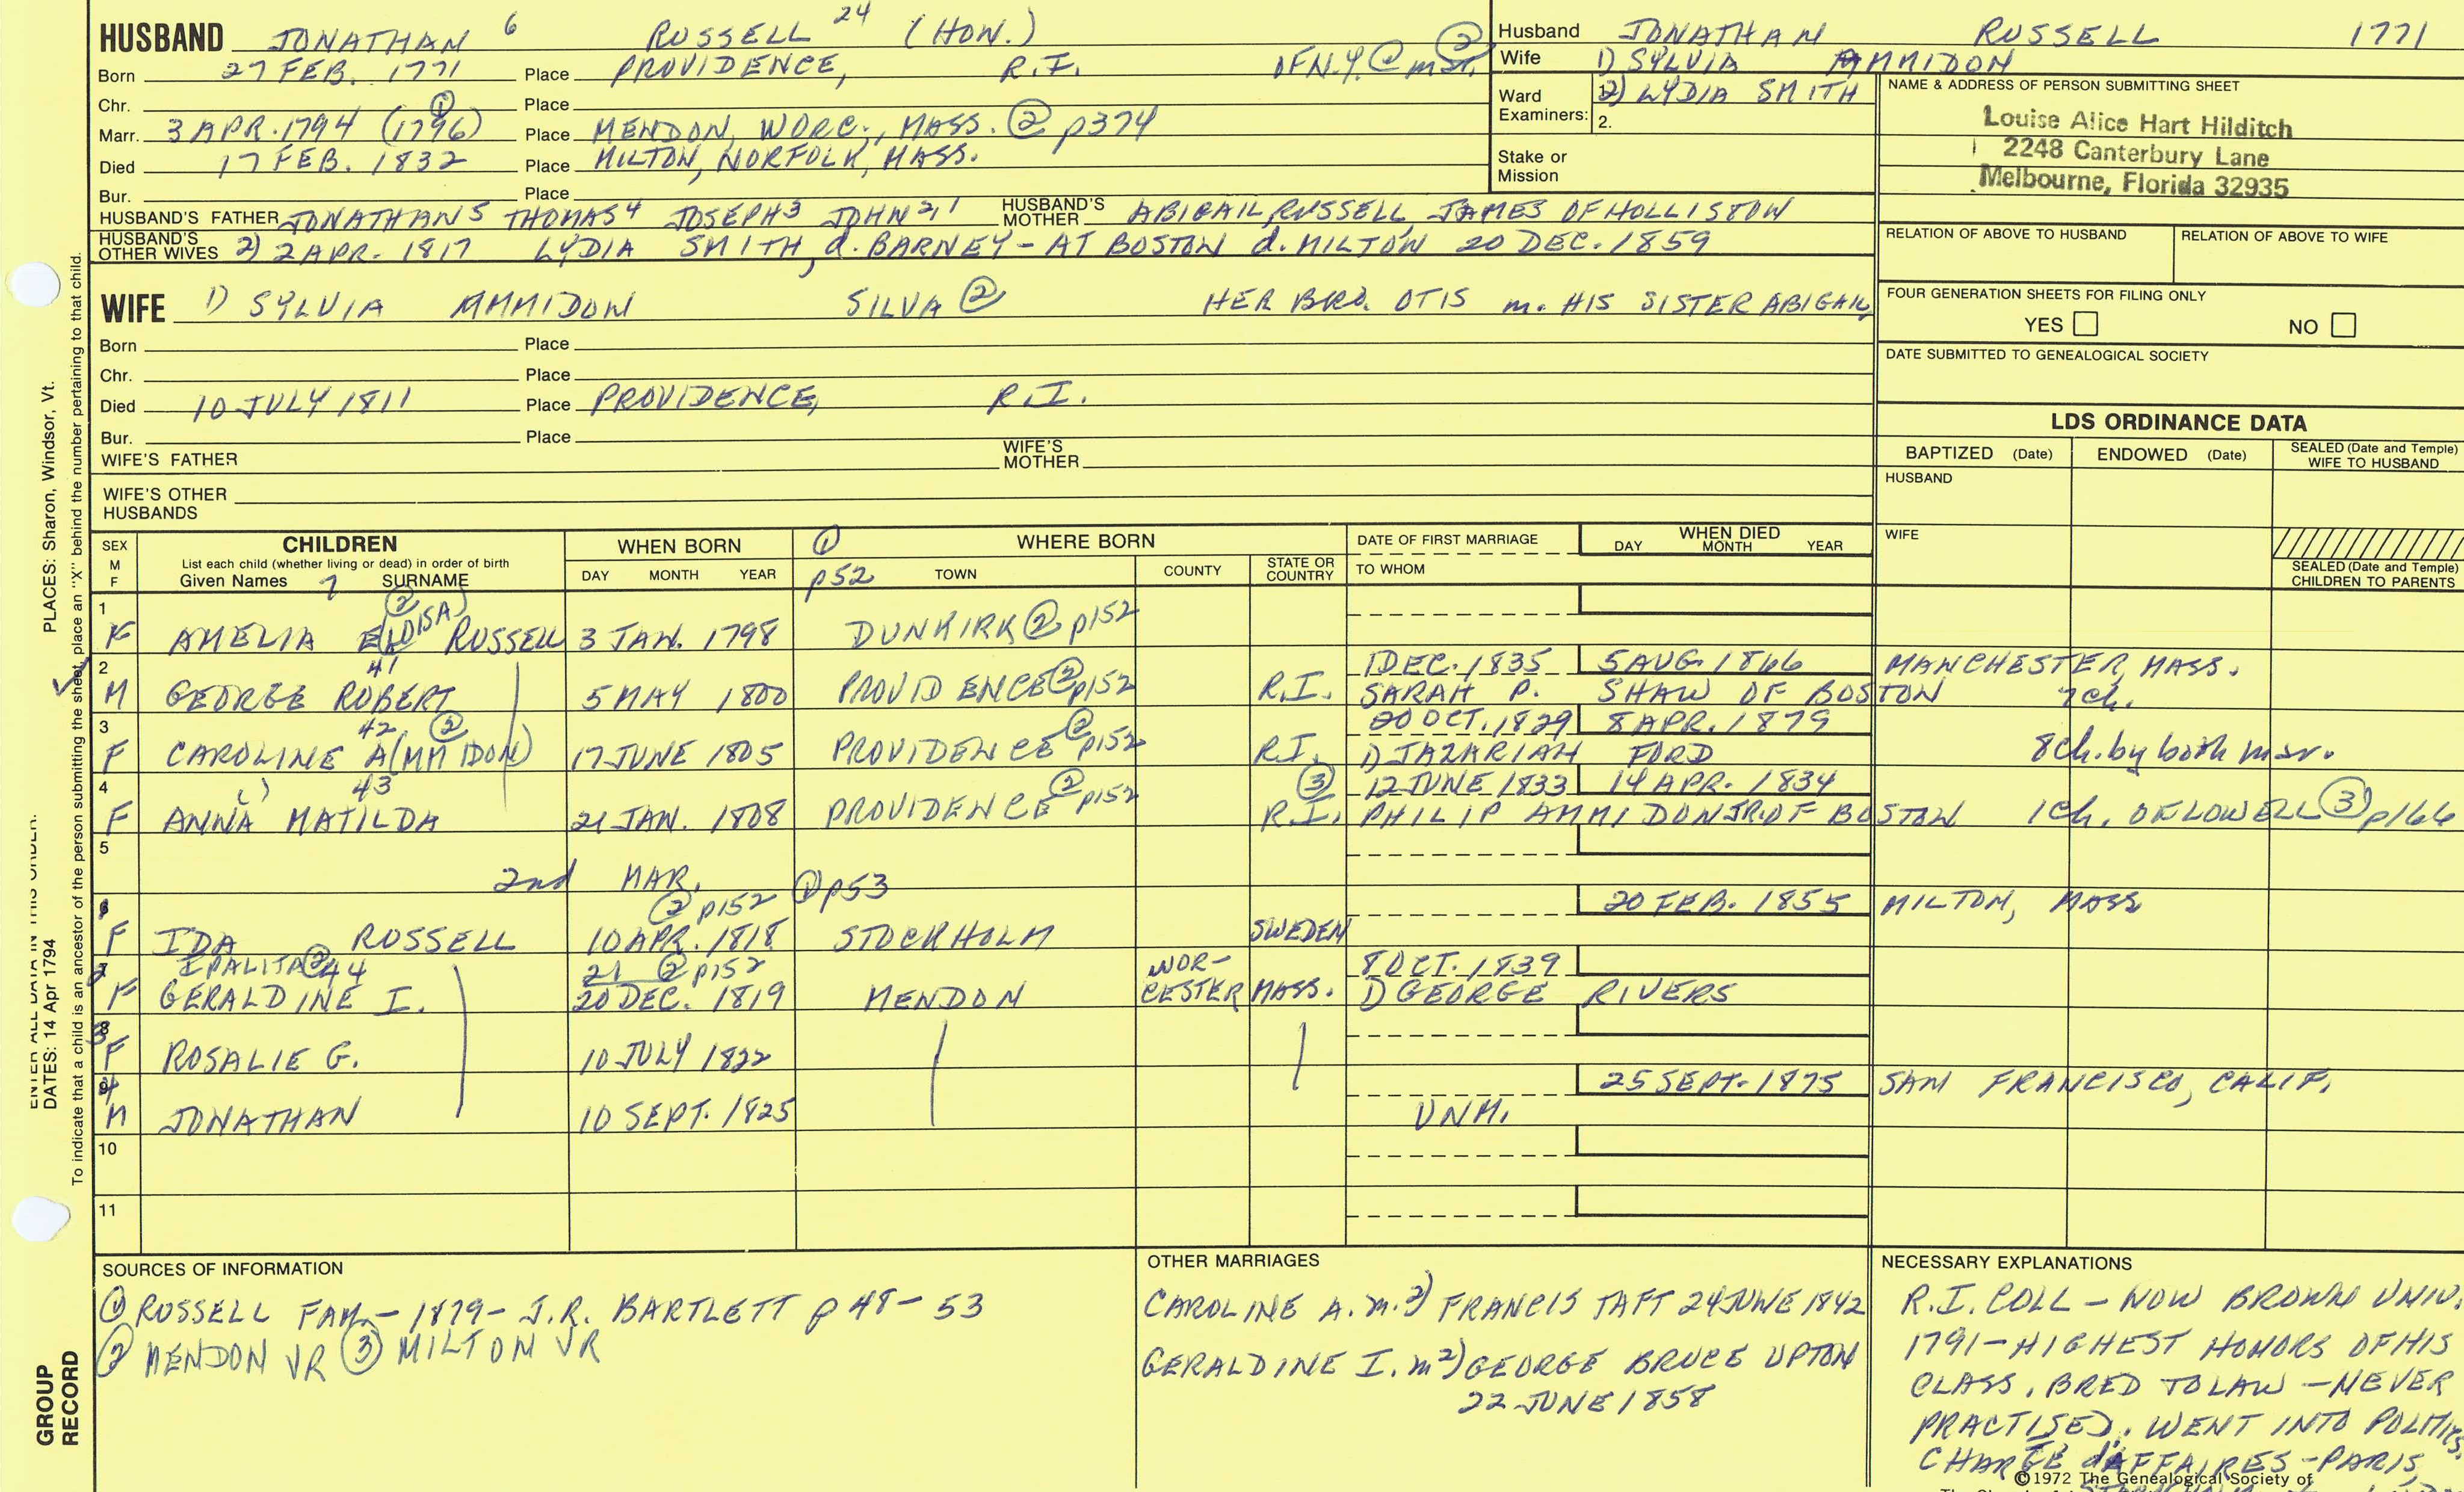 HUSBAND JONATHAN 6 RUSSELL 24 (HON.)
Born 27 FEB. 1771 Place PROVIDENCE, R.I. OF N.Y. @ mar. 2
Chr. Place
Marr. 3 APR. 1794 (1796) 1 Place MENDON, WORC., MASS. 2 p374
Died 17 FEB. 1832 Place MILTON, NORFOLK, MASS.
Bur. Place
HUSBAND'S FATHER JONATHAN 5 THOMAS 4 JOSEPH 3 JOHN 2,1 HUSBAND'S MOTHER ABIGAIL RUSSELL, JAMES OF HOLLISTON
HUSBAND'S OTHER WIVES 2) 2 APR. 1817 LYDIA SMITH, d. BARNEY - AT BOSTON d. MILTON 20 DEC. 1859
WIFE 1) SYLVIA AMMIDON SILVA 2 HER BRO. OTIS m. HIS SISTER ABIGAIL
Born Place
Chr. Place
Died 10 JULY 1811 Place PROVIDENCE, R.I.
Bur. Place
WIFE'S FATHER WIFE'S MOTHER
WIFE'S OTHER HUSBANDS
Husband JONATHAN RUSSELL 1771
Wife 1) SYLVIA AMMIDON
Ward Examiners: 1. 2) LYDIA SMITH
2.
Stake or Mission
NAME & ADDRESS OF PERSON SUBMITTING SHEET
Louise Alice Hart Hilditch
2248 Canterbury Lane
Melbourne, Florida 32935
RELATION OF ABOVE TO HUSBAND RELATION OF ABOVE TO WIFE
FOUR GENERATION SHEETS FOR FILING ONLY
YES NO
DATE SUBMITTED TO GENEALOGICAL SOCIETY
LDS ORDINANCE DATA
BAPTIZED (Date) ENDOWED (Date) SEALED (Date and Temple) WIFE TO HUSBAND
HUSBAND
WIFE
SEALED (Date and Temple) CHILDREN TO PARENTS
SEX M F CHILDREN WHEN BORN 1 WHERE BORN DATE OF FIRST MARRIAGE WHEN DIED
List each child (whether living or dead) in order of birth
Given Names 7 SURNAME DAY MONTH YEAR p52 TOWN COUNTY STATE OR COUNTRY TO WHOM DAY MONTH YEAR
1
F AMELIA EL(OISA) 2 RUSSELL 3 JAN. 1798 DUNKIRK 2 p152
2 41 1 DEC. 1835 5 AUG. 1866 MANCHESTER, MASS.
M GEORGE ROBERT 5 MAY 1800 PROVIDENCE 2 p152 R.I. SARAH P. SHAW OF BOSTON 7 ch.
3 42 2 20 OCT. 1829 8 APR. 1879
F CAROLINE A(MMIDON) 17 JUNE 1805 PROVIDENCE 2 p152 R.I. 1) JAZARIAH FORD 8 ch. by both mar.
4 ( ) 43 3 12 JUNE 1833 14 APR. 1834
F ANNA MATILDA 21 JAN. 1808 PROVIDENCE 2 p152 R.I. PHILIP AMMIDON JR. OF BOSTON 1 ch. OF LOWELL 3 p166
5
2nd MAR. 1 p53
2 p152 20 FEB. 1855 MILTON, MASS
F IDA RUSSELL 10 APR. 1818 STOCKHOLM SWEDEN
IPALITA 2 44 21 2 p152 8 OCT. 1839
F GERALDINE I. 20 DEC. 1819 MENDON WORCESTER MASS. 1) GEORGE RIVERS
F ROSALIE G. 10 JULY 1822
25 SEPT. 1875 SAN FRANCISCO, CALIF.
M JONATHAN 10 SEPT. 1825 UNM.
10
11
SOURCES OF INFORMATION
1 RUSSELL FAM - 1879 - J.R. BARTLETT p 48-53
2 MENDON VR 3 MILTON VR
OTHER MARRIAGES
CAROLINE A. m. 2) FRANCIS TAFT 24 JUNE 1842
GERALDINE I. m 2) GEORGE BRUCE UPTON
22 JUNE 1858
NECESSARY EXPLANATIONS
R.I. COLL - NOW BROWN UNIV.
1791 - HIGHEST HONORS OF HIS
CLASS. BRED TO LAW - NEVER
PRACTISED. WENT INTO POLITICS.
CHARGE d'AFFAIRES - PARIS,
©1972 The Genealogical Society of
PLACES: Sharon, Windsor, Vt.
To indicate that a child is an ancestor of the person submitting the sheet, place an "X" behind the number pertaining to that child.
ENTER ALL DATA IN THIS ORDER:
DATES: 14 Apr 1794
GROUP RECORD